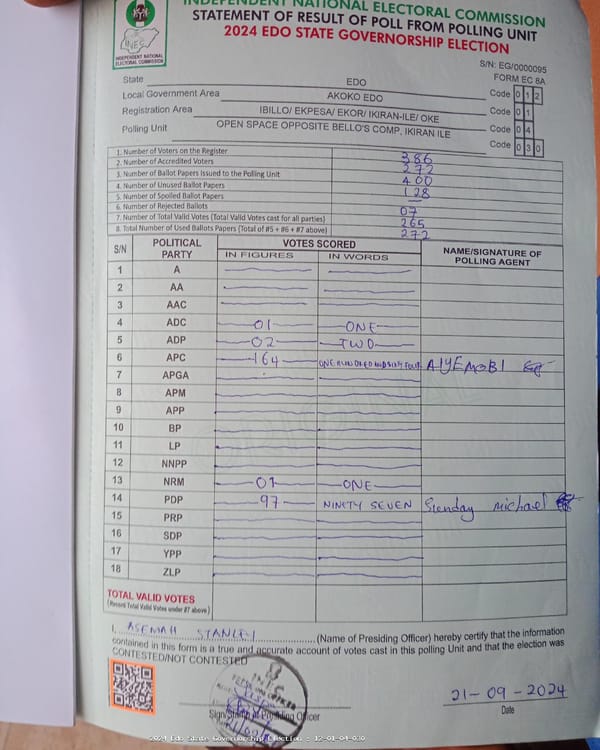 INDEPENDENT NATIONAL ELECTORAL COMMISSION
STATEMENT OF RESULT OF POLL FROM POLLING UNIT
2024 EDO STATE GOVERNORSHIP ELECTION
INEC
INDEPENDENT NATIONAL
ELECTORAL COMMISSION
S/N: EG/0000095
FORM EC 8A
State EDO
Local Government Area AKOKO EDO Code 0 1 2
Registration Area IBILLO/ EKPESA/ EKOR/ IKIRAN-ILE/ OKE Code 0 1
Polling Unit OPEN SPACE OPPOSITE BELLO'S COMP. IKIRAN ILE Code 0 4
Code 0 3 0
1. Number of Voters on the Register 386
2. Number of Accredited Voters 272
3. Number of Ballot Papers Issued to the Polling Unit 400
4. Number of Unused Ballot Papers 128
5. Number of Spoiled Ballot Papers —
6. Number of Rejected Ballots 07
7. Number of Total Valid Votes (Total Valid Votes cast for all parties) 265
8. Total Number of Used Ballots Papers (Total of #5 + #6 + #7 above) 272
S/N POLITICAL PARTY VOTES SCORED NAME/SIGNATURE OF POLLING AGENT
IN FIGURES IN WORDS
1 A
2 AA
3 AAC
4 ADC 01 ONE
5 ADP 02 TWO
6 APC 164 ONE HUNDRED AND SIXTY FOUR AIYEMOBI
7 APGA
8 APM
9 APP
10 BP
11 LP
12 NNPP
13 NRM 01 ONE
14 PDP 97 NINETY SEVEN Sunday michael
15 PRP
16 SDP
17 YPP
18 ZLP
TOTAL VALID VOTES
(Record Total Valid Votes under #7 above)
I, ASEMAH STANLEY (Name of Presiding Officer) hereby certify that the information
contained in this form is a true and accurate account of votes cast in this polling Unit and that the election was
CONTESTED/NOT CONTESTED
21-09-2024
Sign/Stamp of Presiding Officer
Date
2024 Edo State Governorship Election : 12-01-04-030